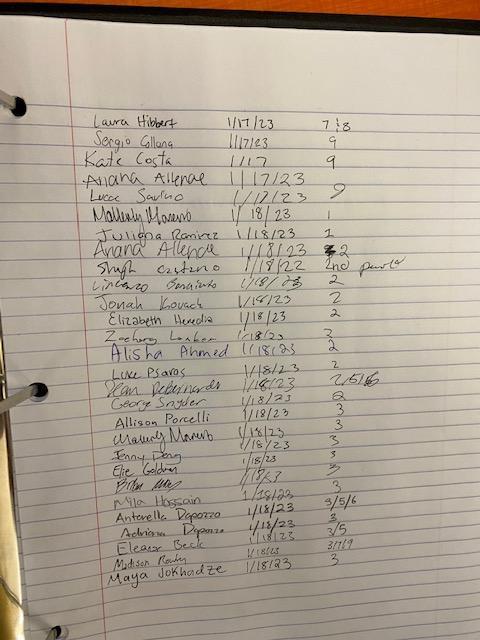 Laura Hibbert 1/17/23 7 & 8
Sergio Collana 1/17/23 9
Kate Costa 1/17 9
Ariana Allende 1/17/23
Lucac Savino 1/17/23 9
Mallerly Moreno 1/18/23 1
Juliana Ramirez 1/18/23 1
Ariana Allende 1/18/23 2
1/18/22 2nd
Vincenzo 1/18/23 2
Jonah Kovach 1/18/23 2
Elizabeth Heredia 1/18/23 2
Zachary 1/18/23 2
Alisha Ahmed 1/18/23 2
Luke Psaros 1/18/23 2
1/18/23 2/5/6
George Snyder 1/18/23 2
Allison Porcelli 1/18/23 3
Mallerly Moreno 1/18/23 3
Jenny Deng 1/18/23 3
Elie Goldman 1/18/23 3
Brian 3
Mila Hossain 1/18/23 3
Antonella Dapozzo 1/18/23 3/5/6
Adriana Dapozzo 1/18/23 3
Eleanor Beck 1/18/23 3/5
Madison 1/18/23 3/7/9
Maya Jokhadze 1/18/23 3